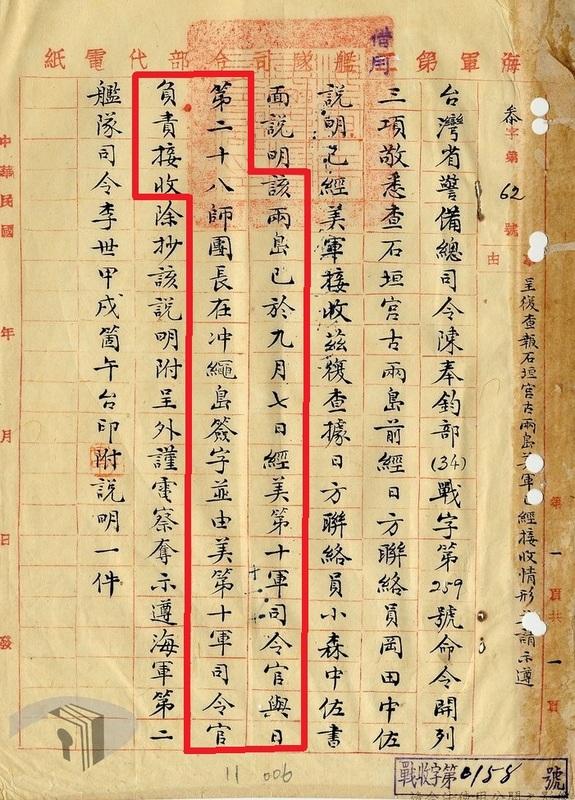 海軍第二艦隊司令部代電紙
借用
第一頁共一頁
呈復查報石垣宮古兩島美軍已經接收情形並請示遵
由
叅字第62號
台灣省警備總司令陳奉鈞部(34)戰字第259號命令開列
三項敬悉查石垣宮古兩島前經日方聯絡員岡田中佐
說明已經美軍接收茲複查據日方聯絡員小森中佐書
面說明該兩島已於九月七日經美第十軍司令官與日
第二十八師團長在冲繩島簽字並由美第十軍司令官
負責接收除抄該說明附呈外謹電察奪示遵海軍第二
艦隊司令李世甲戌箇午台印附說明一件
中華民國 年 月 日 發
戰收字第0158號
11 006